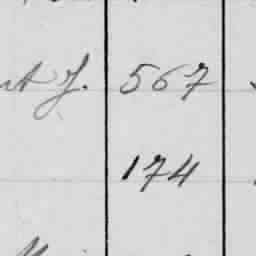 J. 567
174